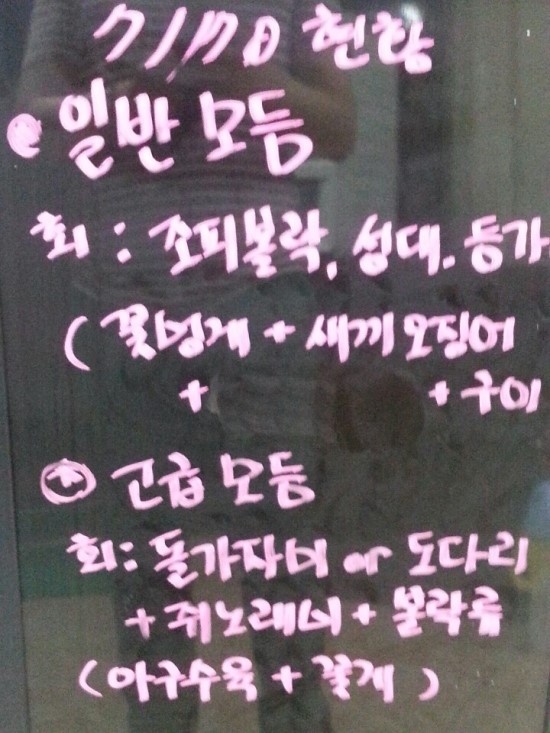 7/170 현황
일반 모듬
회 : 조피볼락, 성대. 등가
( 꽃멍게 + 새끼오징어
+ + 구이
고급 모듬
회: 돌가자미 or 도다리
+ 쥐노래미 + 볼락류
(아구수육 + 꽃게 )